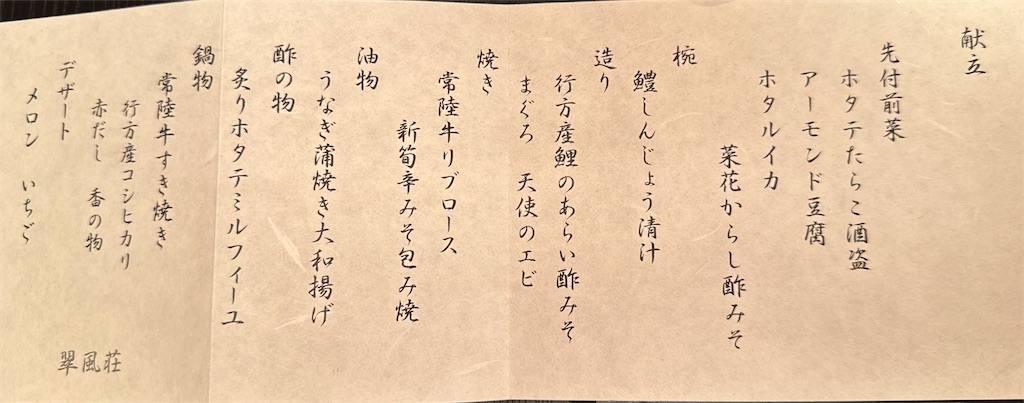 献立
先付前菜
ホタテたらこ酒盗
アーモンド豆腐
ホタルイカ
菜花からし酢みそ
椀
鱧しんじょう清汁
造り
行方産鯉のあらい酢みそ
まぐろ 天使のエビ
焼き
常陸牛リブロース
新筍辛みそ包み焼
油物
うなぎ蒲焼き大和揚げ
酢の物
炙りホタテミルフィーユ
鍋物
常陸牛すき焼き
行方産コシヒカリ
赤だし 香の物
デザート
メロン いちご
翠風荘